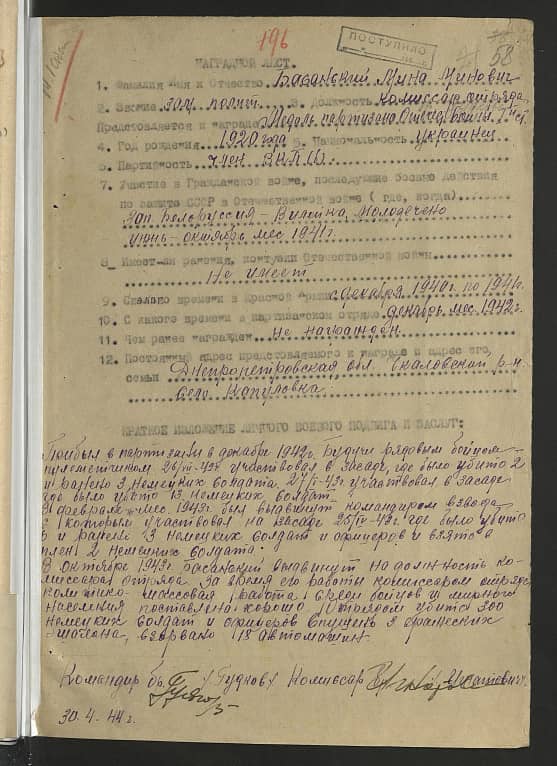 196
ПОСТУПИЛО
58
НАГРАДНОЙ ЛИСТ.
1. Фамилия имя и Отчество Басанский Мина Минович
2. Звание зам. полит. 3. Должность комиссар отряда
Представляется к награде Медаль партизана Отечеств. войны I ст.
4. Год рождения 1920 года 5. Национальность украинец
6. Партийность член ВКП(б)
7. Участие в Гражданской войне, последующие боевые действия
по защите СССР в Отечественной войне ( где, когда)
Зап. Белоруссия – Вилейка, Молодечно
июнь – октябрь мес 1941г.
8. Имеет-ли ранения, контузии Отечественной войны
Не имеет
9. Сколько времени в Красной Армии с декабря 1940г. по 1941г.
10. С какого времени в партизанском отряде декабрь мес. 1942г.
11. Чем ранее награжден не награжден
12. Постоянный адрес представляемого к награде и адрес его,
семьи Днепропетровская обл. р-н
село Капуловка
КРАТКОЕ ИЗЛОЖЕНИЕ ЛИЧНОГО БОЕВОГО ПОДВИГА И ЗАСЛУГ:
Прибыл в партизаны в декабре 1942г. Будучи рядовым бойцом-
пулеметчиком 43г участвовал в засаде, где было убито 2
и ранено 3 немецких солдата. 43г. участвовал в засаде
где было убито 13 немецких солдат.
В феврале мес. 1943г. был выдвинут командиром взвода
с которым участвовал на засаде 43г. где было убито
и ранено 13 немецких солдат и офицеров и взято в
плен 2 немецких солдата.
В октябре 1943г. Басанский выдвинут на должность ко-
миссара отряда. За время его работы комиссаром отряда
политико-массовая работа среди бойцов и мирного
населения поставлена хорошо. Отрядом убито 300
немецких солдат и офицеров спущено 9 вражеских
эшелона, взорвано 18 автомашин.
Командир бр. /Гудков/ Комиссар
30.4.44г.